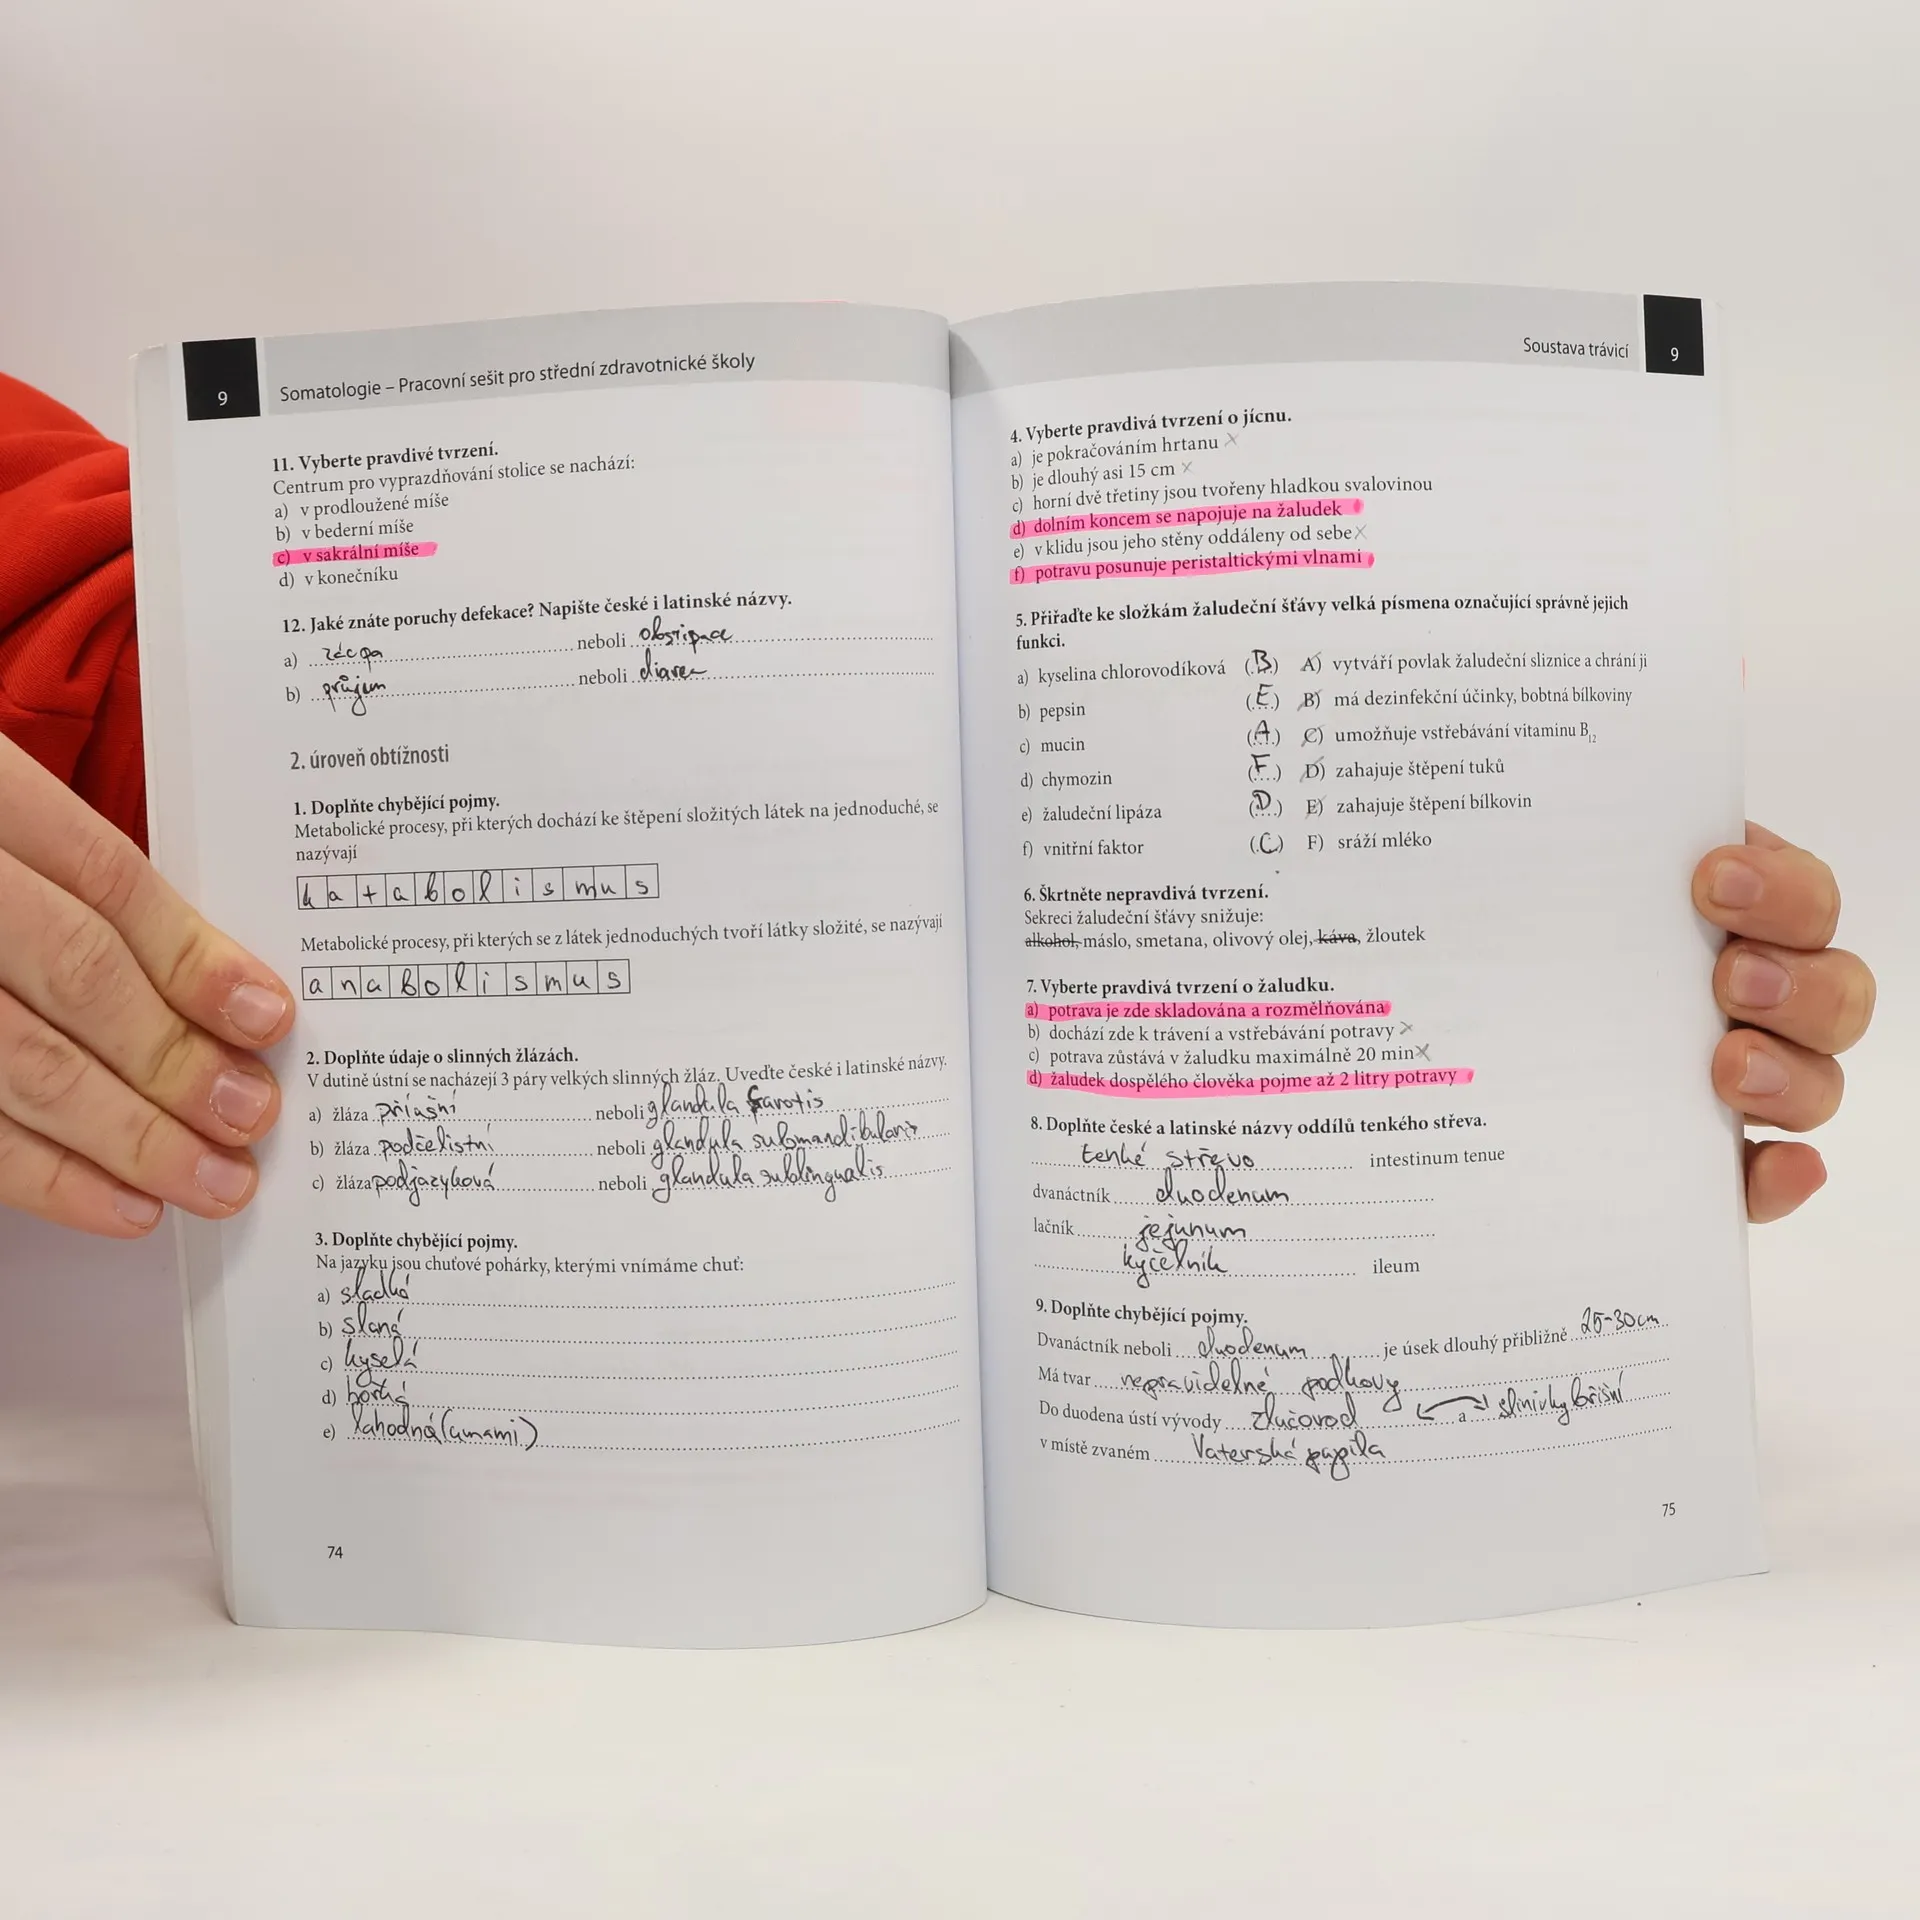 9
Somatologie – Pracovní sešit pro střední zdravotnické školy
11. Vyberte pravdivé tvrzení.
Centrum pro vyprazdňování stolice se nachází:
a) v prodloužené míše
b) v bederní míše
c) v sakrální míše
d) v konečníku
12. Jaké znáte poruchy defekace? Napište české i latinské názvy.
a) zácpa neboli obstipace
b) průjem neboli diarea
2. úroveň obtížnosti
1. Doplňte chybějící pojmy.
Metabolické procesy, při kterých dochází ke štěpení složitých látek na jednoduché, se
nazývají
katabolismus
Metabolické procesy, při kterých se z látek jednoduchých tvoří látky složité, se nazývají
anabolismus
2. Doplňte údaje o slinných žlázách.
V dutině ústní se nacházejí 3 páry velkých slinných žláz. Uveďte české i latinské názvy.
a) žláza příušní neboli glandula parotis
b) žláza podčelistní neboli glandula submandibularis
c) žláza podjazyková neboli glandula sublingualis
3. Doplňte chybějící pojmy.
Na jazyku jsou chuťové pohárky, kterými vnímáme chuť:
a) sladká
b) slaná
c) kyselá
d) hořká
e) lahodná (umami)
74
Soustava trávicí
9
4. Vyberte pravdivá tvrzení o jícnu.
a) je pokračováním hrtanu x
b) je dlouhý asi 15 cm x
c) horní dvě třetiny jsou tvořeny hladkou svalovinou
d) dolním koncem se napojuje na žaludek
e) v klidu jsou jeho stěny oddáleny od sebe x
f) potravu posunuje peristaltickými vlnami
5. Přiřaďte ke složkám žaludeční šťávy velká písmena označující správně jejich
funkci.
a) kyselina chlorovodíková (B) A) vytváří povlak žaludeční sliznice a chrání ji
b) pepsin (E) B) má dezinfekční účinky, bobtná bílkoviny
c) mucin (A) C) umožňuje vstřebávání vitaminu B12
d) chymozin (F) D) zahajuje štěpení tuků
e) žaludeční lipáza (D) E) zahajuje štěpení bílkovin
f) vnitřní faktor (C) F) sráží mléko
6. Škrtněte nepravdivá tvrzení.
Sekreci žaludeční šťávy snižuje:
alkohol, máslo, smetana, olivový olej, káva, žloutek
7. Vyberte pravdivá tvrzení o žaludku.
a) potrava je zde skladována a rozmělňována
b) dochází zde k trávení a vstřebávání potravy x
c) potrava zůstává v žaludku maximálně 20 min x
d) žaludek dospělého člověka pojme až 2 litry potravy
8. Doplňte české a latinské názvy oddílů tenkého střeva.
tenké střevo intestinum tenue
dvanáctník duodenum
lačník jejunum
kyčelník ileum
9. Doplňte chybějící pojmy.
Dvanáctník neboli duodenum je úsek dlouhý přibližně 25-30cm
Má tvar nepravidelné podkovy
Do duodena ústí vývody žlučovod a slinivky břišní
v místě zvaném Vaterská papila
75